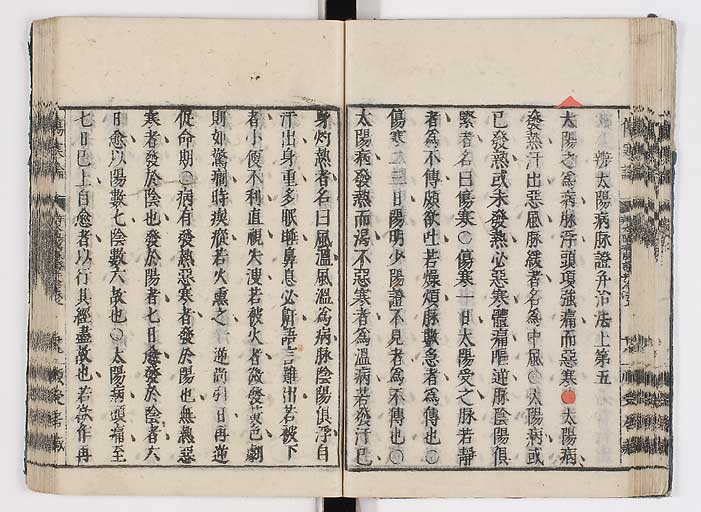 辨太陽病脉證并治法上第五
太陽之爲病脉浮頭項強痛而惡寒〇太陽病
發熱汗出惡風脉緩者名爲中風〇太陽病或
已發熱或未發熱必惡寒體痛嘔逆脉陰陽俱
緊者名曰傷寒〇傷寒一日太陽受之脉若靜
者爲不傳頗欲吐若燥煩脉數急者爲傳也〇
傷寒二三日陽明少陽證不見者爲不傳也〇
太陽病發熱而渴不惡寒者爲溫病若發汗已
身灼熱者名曰風溫風溫爲病脉陰陽俱浮自
汗出身重多眠睡鼻息必鼾語言難出若被下
者小便不利直視失溲若被火者微發黃色劇
則如驚癇時瘈瘲若火熏之一逆尚引日再逆
促命期〇病有發熱惡寒者發於陽也無熱惡
寒者發於陰也發於陽者七日愈發於陰者六
日愈以陽數七陰數六故也〇太陽病頭痛至
七日已上自愈者以行其經盡故也若欲作再